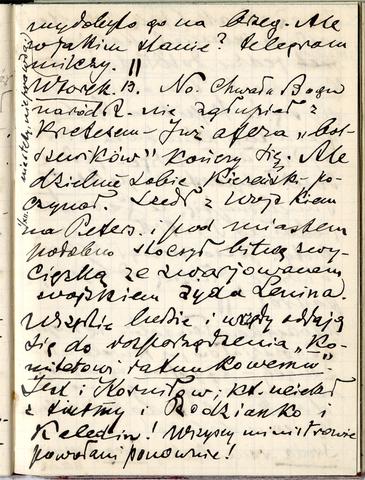 wydobyto go na brzeg. Ale
w jakim stanie? Telegram
milczy. ||
Wtorek. 13. No. Chwała Bogu
naród R. nie zgłupiał z
kretesem – Już afera „bol-
szewików” kończy się. Ale
dzielnie sobie Kiereński po-
czynał. Szedł z wojskiem
na Petersb. i pod miastem
podobno stoczył bitwę zwy-
cięską ze zwarjowanem
wojskiem żyda Lenina.
Wszędzie ludzie i urzędy oddają
się do rozporządzenia „Ko-
mitetowi ratunkowemu”.
Jest i Korniłow, kt. uciekł
z turmy i Rodzianko i
Keledin! Wszyscy ministrowie
powołani ponownie!
niestety nieprawda